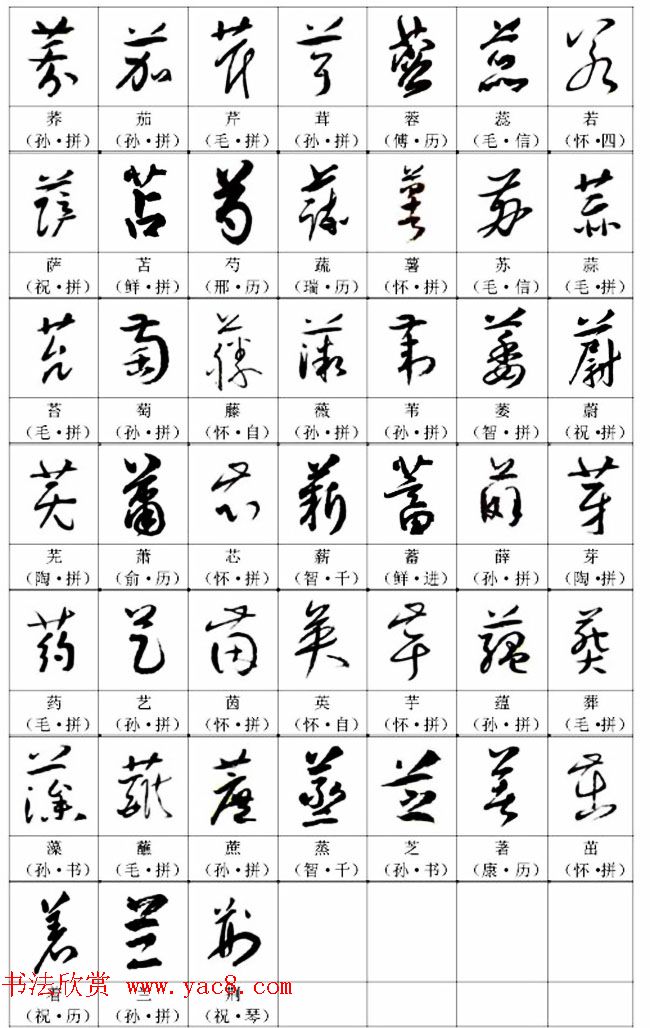 荞 茄 芹 茸 蓉 蕊 若
(孙·拼) (孙·拼) (毛·拼) (孙·拼) (傅·历) (毛·信) (怀·四)
萨 苫 芍 蔬 薯 苏 蒜
(祝·拼) (鲜·拼) (邢·历) (瑞·历) (怀·拼) (毛·信) (毛·拼)
苔 萄 藤 薇 苇 萎 蔚
(毛·拼) (孙·拼) (怀·自) (孙·拼) (孙·拼) (智·拼) (祝·拼)
芜 萧 芯 薪 蓄 薛 芽
(陶·拼) (俞·历) (怀·拼) (智·千) (鲜·进) (孙·拼) (陶·拼)
药 艺 茵 英 芋 蕴 葬
(毛·拼) (孙·拼) (怀·拼) (怀·自) (怀·拼) (孙·拼) (毛·拼)
藻 蘸 蔗 蒸 芝 著 茁
(孙·书) (毛·拼) (孙·拼) (智·千) (孙·书) (康·历) (怀·拼)
着 兰 荆
书法欣赏 www.yac8.com
(祝·历) (孙·拼) (祝·琴)